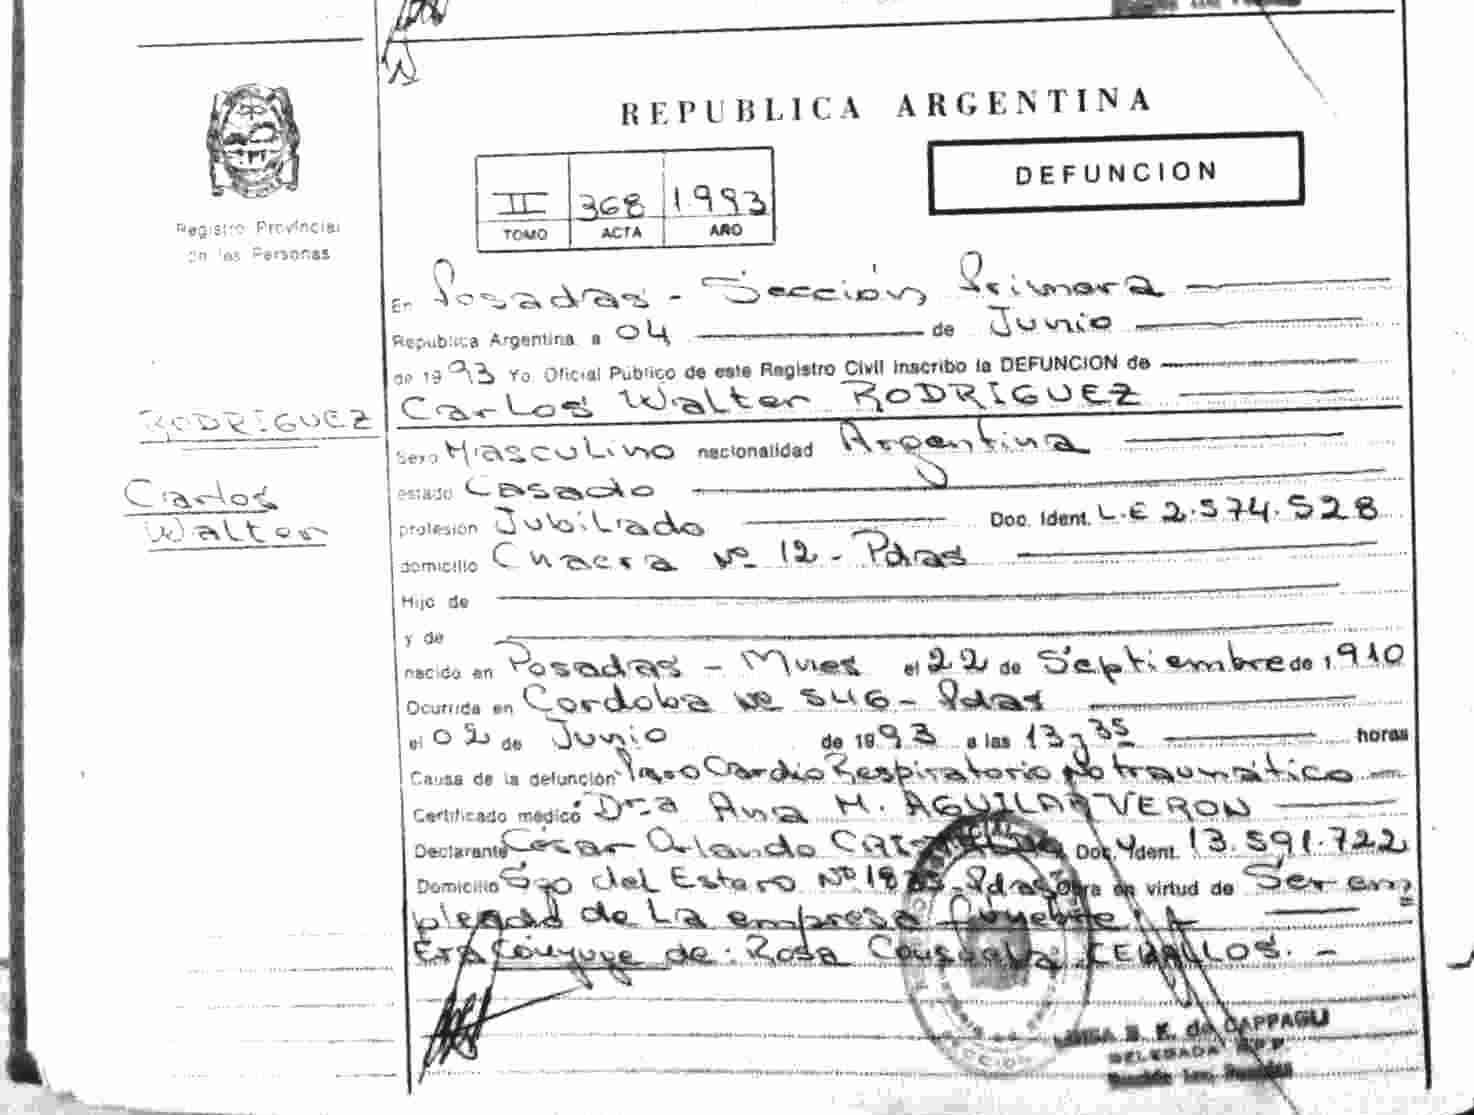 REPUBLICA ARGENTINA
DEFUNCION
II 368 1.993
TOMO ACTA AÑO
Registro Provincial
de las Personas
En Posadas - Sección Primera
Republica Argentina a 04 de Junio
de 1993 Yo. Oficial Público de este Registro Civil inscribo la DEFUNCION de
Carlos Walter RODRIGUEZ
RODRIGUEZ
Carlos
Walter
Sexo Masculino nacionalidad Argentina
estado Casado
profesión Jubilado Doc. Ident. L.E 2.574.528
domicilio Chacra Nº 12 - Pdas
Hijo de
y de
nacido en Posadas - Mnes el 22 de Septiembre de 1.910
Ocurrida en Cordoba Nº 546 - Pdas
el 02 de Junio de 1993 a las 13 y 35 horas
Causa de la defunción Paro Cardio Respiratorio No traumático
Certificado médico Dra Ana M. AGUILAR VERON
Declarante César Orlando Doc. Ident. 13.591.722
Domicilio Sgo del Estero Nº - Pdas Obra en virtud de Ser em=
pleado de La empresa
Era Cónyuge de: Rosa CEBALLOS. -
LUISA S. E. de CAPPAGLI
DELEGADA